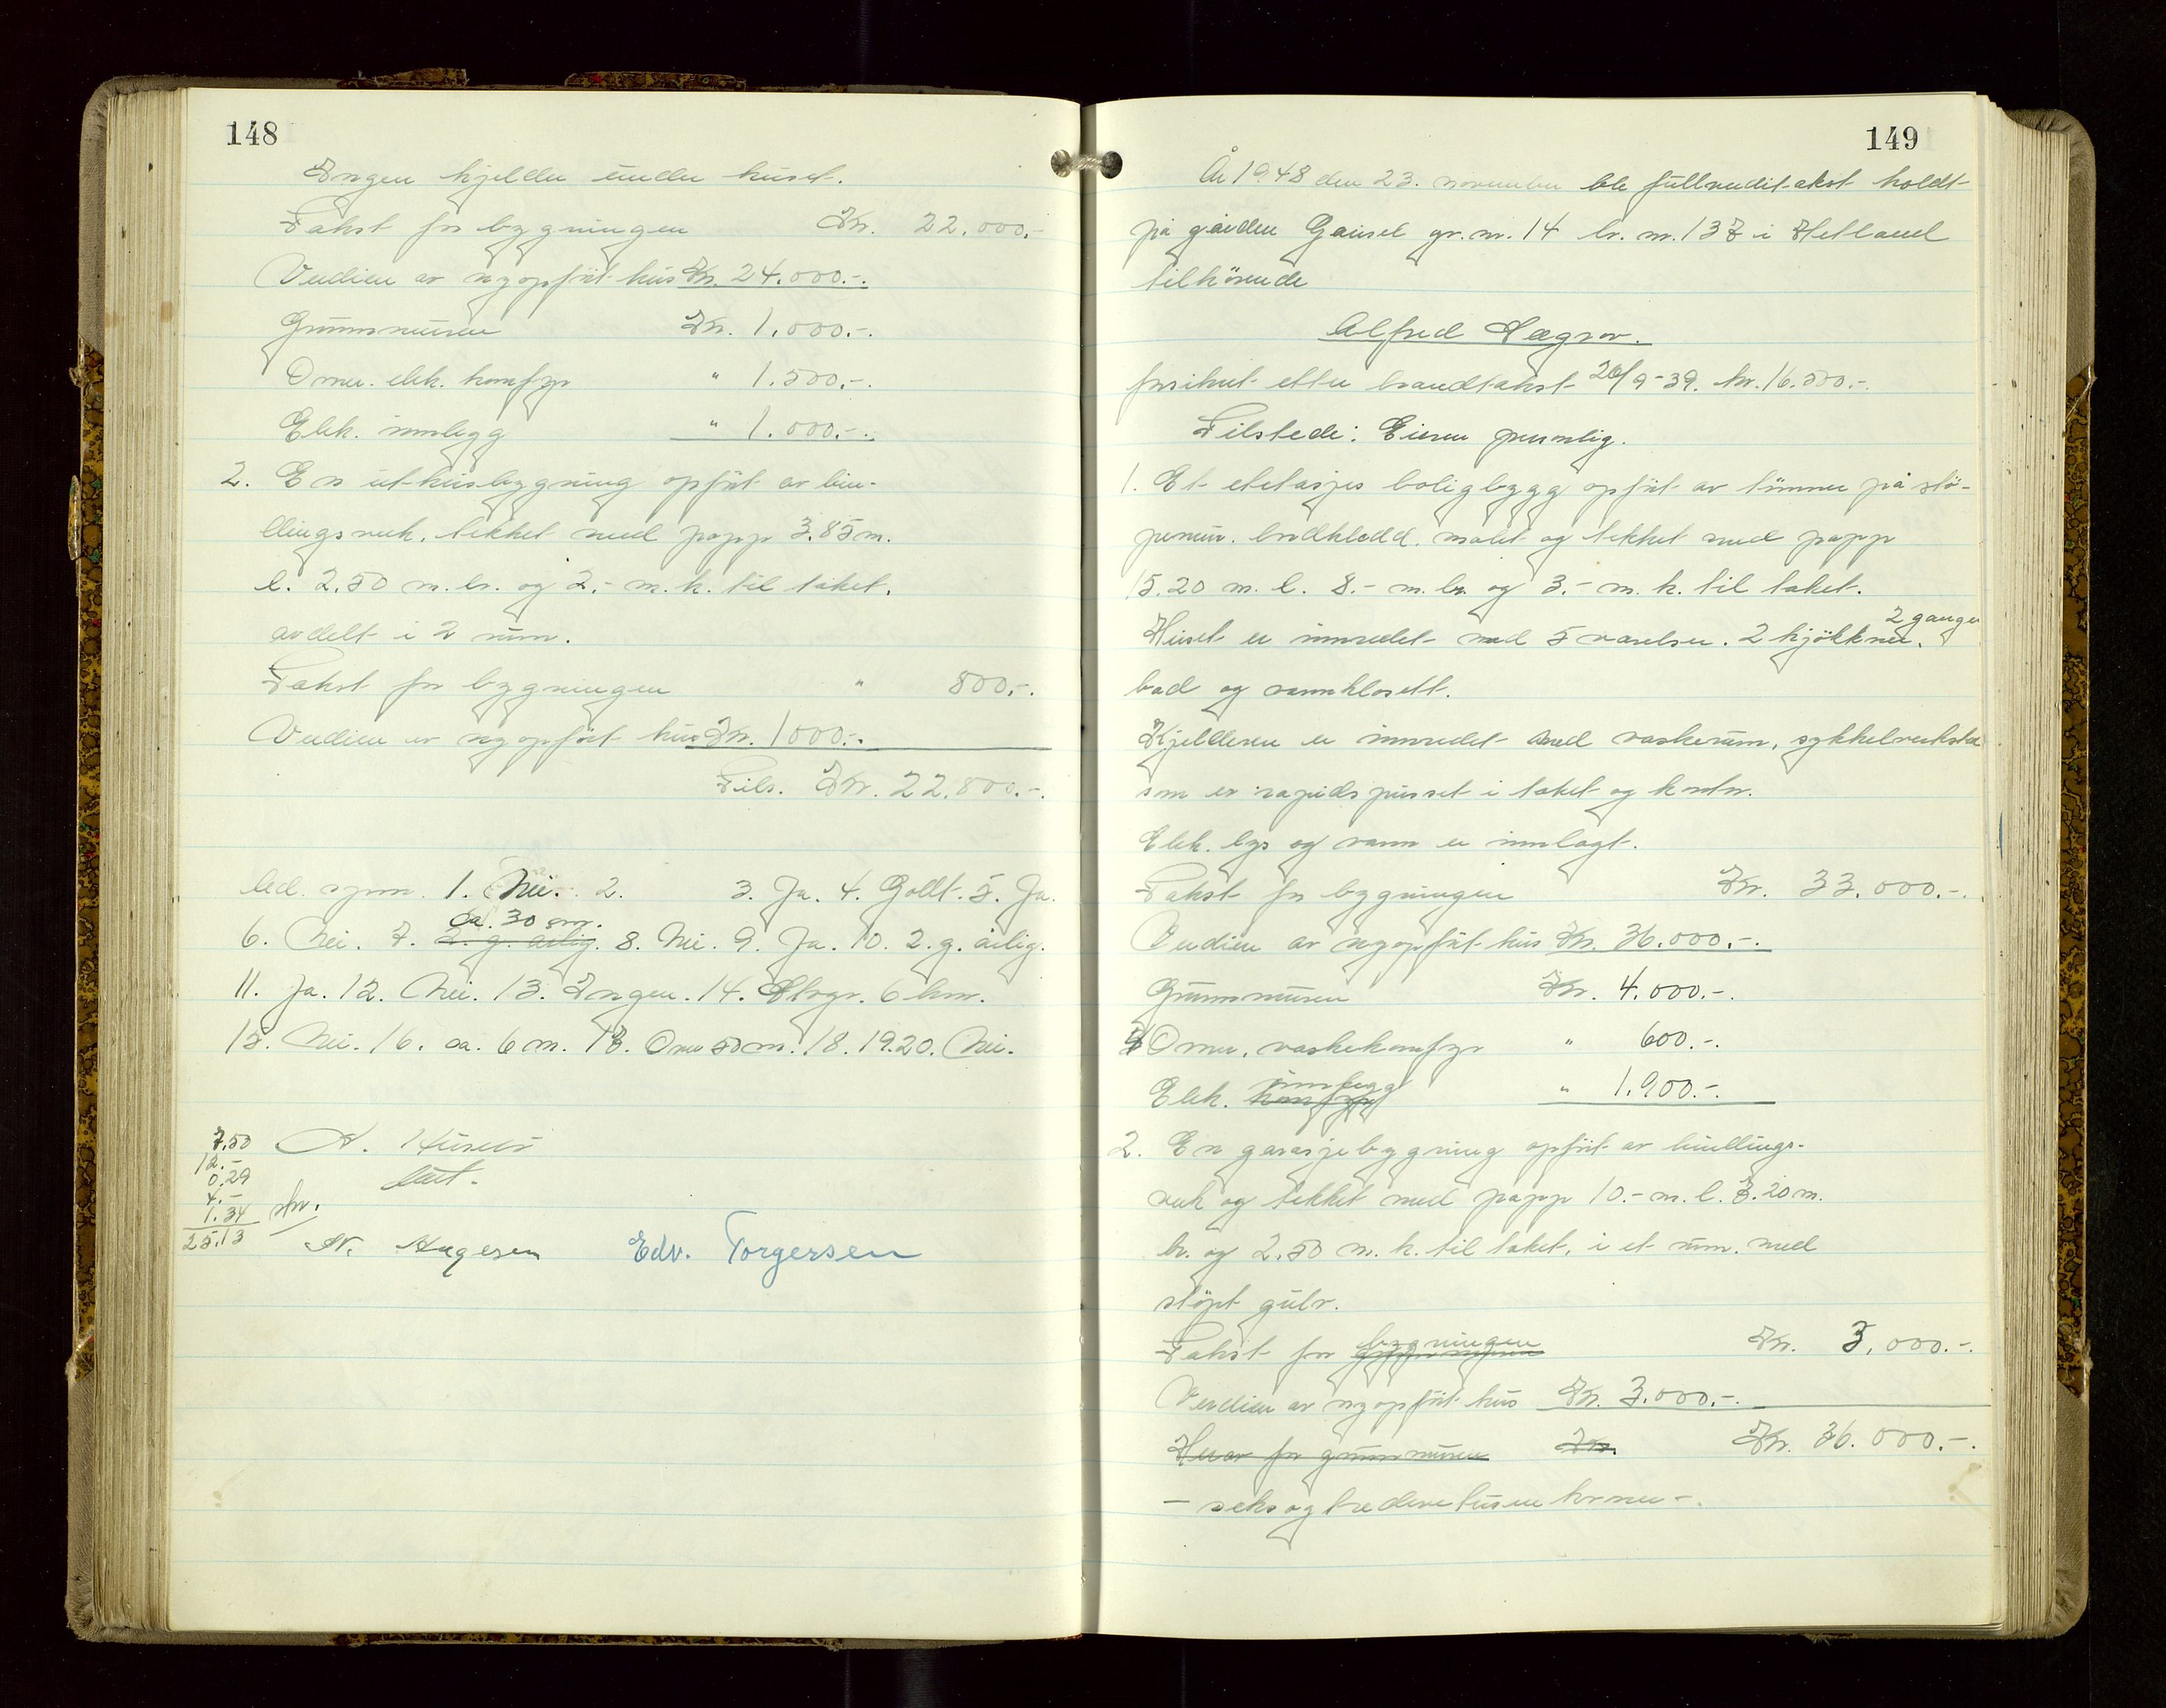 148
Ingen kjelder under huset.
Takst for bygningen Kr. 22.000.-
Verdien av nyopført hus Kr. 24.000.-.
Grunnmuren Kr. 1.000.-.
Omn. elek. komfyr " 1.500.-.
Elek. innlegg " 1.000.-.
2. En uthusbygning opført av bin-
dingsverk, tekket med papp 3.85 m.
l. 2.50 m. br. og 2.- m. h. til taket.
avdelt i 2 rum.
Takst for bygningen " 800.-.
Verdien av nyopført hus Kr. 1000.-.
Tils. Kr. 22.800.-.
Led. spm. 1. Nei. 2. 3. Ja. 4. Godt. 5. Ja.
ca. 30 cm.
6. Nei. 7. 2. g. årlig. 8. Nei. 9. Ja. 10. 2. g. årlig.
11. Ja. 12. Nei. 13. Ingen. 14. Stvgr. 6 km.
15. Nei. 16. ca. 6 m. 17. Over 50 m. 18. 19. 20. Nei.
7.50
12.-
0.29
4.-
1.34
25.13
skr.
N. Aagesen Edv. Torgersen
149
År 1948 den 23. november ble fullverditakst holdt
på gården Gausel gr. nr. 14 br. nr. 137 i Hetland
tilhørende
Alfred Hægrov.
forsikret etter brandtakst 26/9-39. kr. 16.500.-.
Tilstede: Eieren personlig.
1. Et etetasjes boligbygg opført av tømmer på stø-
pemur. bordkledd, malet og tekket med papp
15.20 m. l. 8.- m. br. og 3.- m. h. til taket.
2 ganger
Huset er innredet med 5 værelser. 2 kjøkkner.
bad og vannklosett.
Kjelderen er innredet med vaskerum, sykkelverksted
som er rapidspusset i taket og kontor.
Elek. lys og vann er innlagt.
Takst for bygningen Kr. 33.000.-.
Verdien av nyopført hus Kr. 36.000.-.
Grunnmuren Kr. 4.000.-.
Omn. vaskekomfyr " 600.-.
innlegg
Elek. komfyr " 1.900.-.
2. En garasjebygning opført av bindings-
verk og tekket med papp 10.- m. l. 3.20 m.
br. og 2.50 m. h. til taket, i et rum. med
støpt gulv.
bygningen
Takst for grunnmuren Kr. 3.000.-.
Verdien av nyopført hus Kr. 3.000.-.
Herav for grunnmuren Kr. Kr. 36.000.-.
- seksogtredevetusen kroner -.